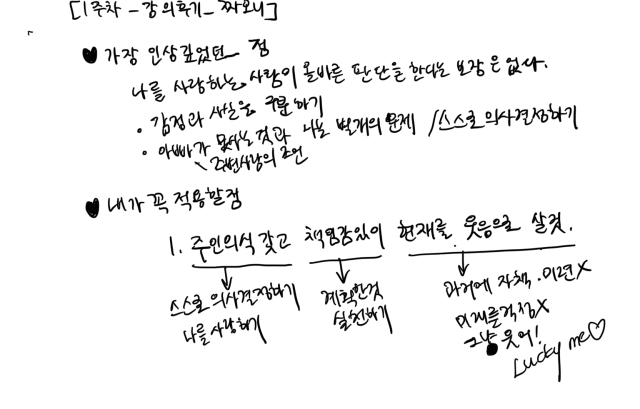 [1주차 - 강의후기 - 짜오니]
♥ 가장 인상깊었던 점
나를 사랑하는 사람이 올바른 판단을 한다는 보장은 없다.
· 감정과 사실을 구분하기
· 아빠가 못사는 것과 나는 별개의 문제 / 스스로 의사결정하기
주변사람의 조언
♥ 내가 꼭 적용할점
1. 주인의식 갖고 책임감있이 현재를 웃음으로 살것.
스스로 의사결정하기 계획한것 과거에 자책·미련X
나를 사랑하기 실천하기 미래를걱정X
그냥 웃어!
Lucky me♡